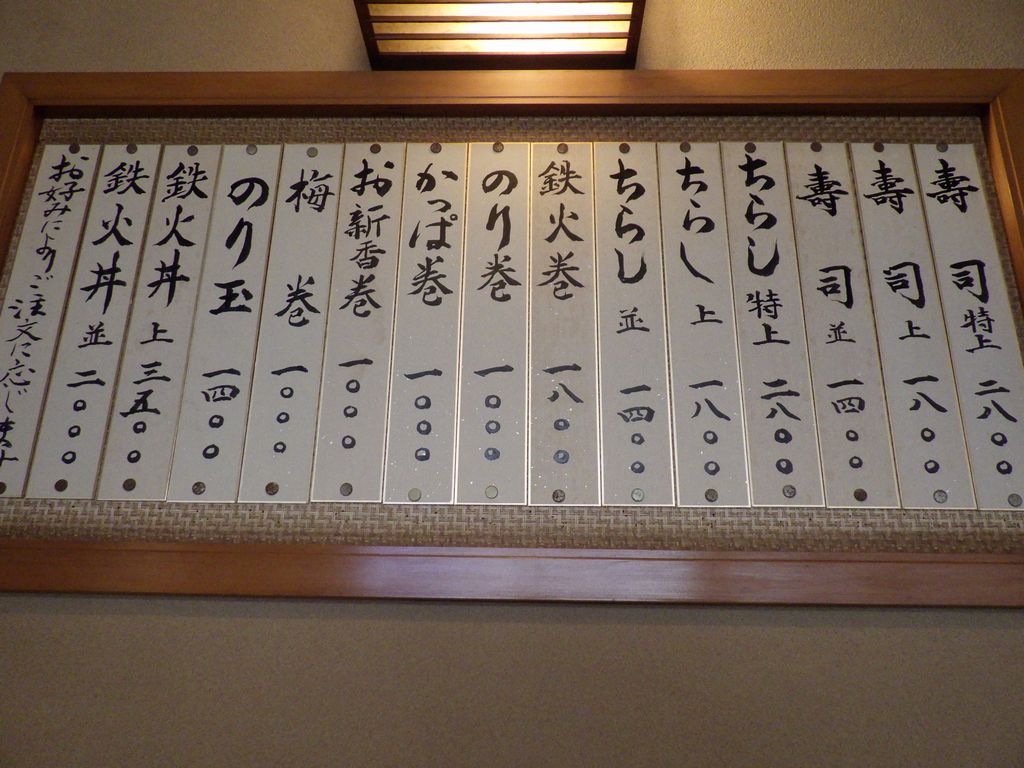 壽司特上 二八〇〇
壽司上 一八〇〇
壽司並 一四〇〇
ちらし特上 二八〇〇
ちらし上 一八〇〇
ちらし並 一四〇〇
鉄火巻 一八〇〇
のり巻 一〇〇〇
かっぱ巻 一〇〇〇
お新香巻 一〇〇〇
梅巻 一〇〇〇
のり玉 一四〇〇
鉄火丼上 三五〇〇
鉄火丼並 二〇〇〇
お好みによりご注文に応じます